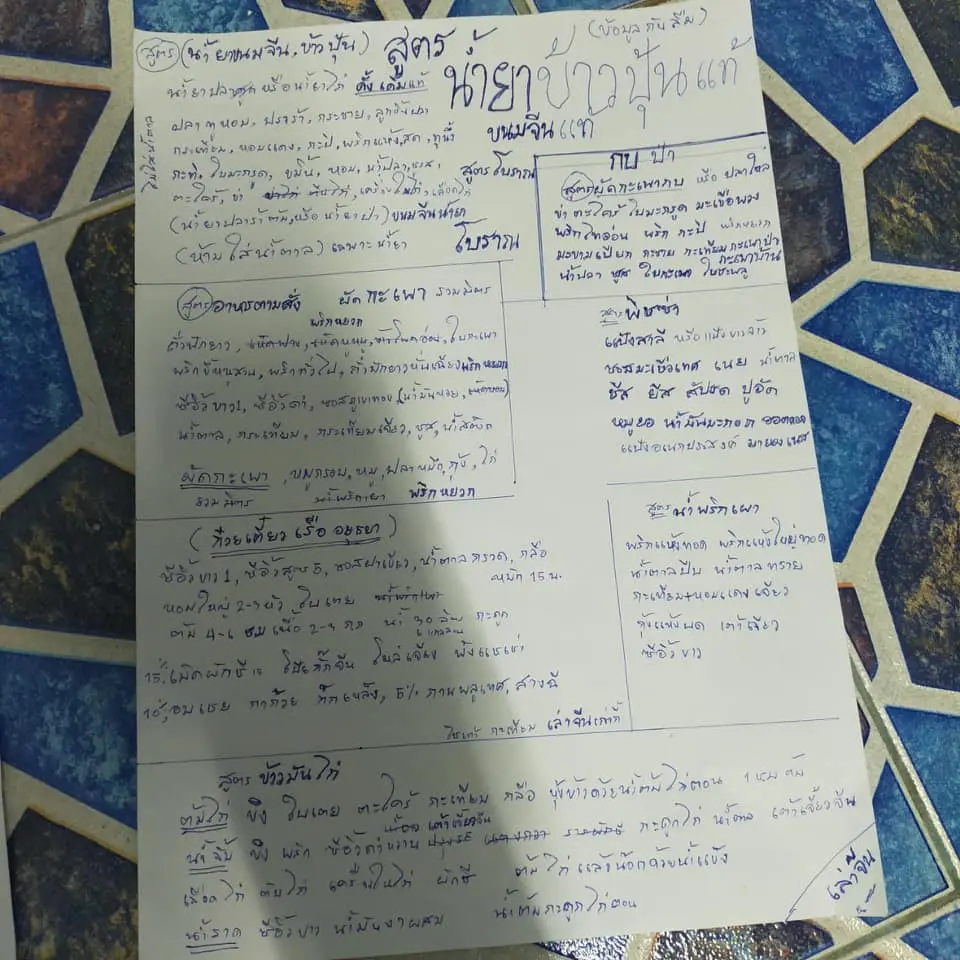 สูตร (น้ำยาขนมจีน, ข้าวปุ้น)
สูตร น้ำยาข้าวปุ้นแท้
(ข้อมูล กันลืม)
ขนมจีนแท้
น้ำยาปลาดุก หรือน้ำยาไก่ ดั้งเดิมแท้
ปลาทูหอม, ปลาร้า, กระชาย, ลูกชิ้นปลา
กระเทียม, หอมแดง, กะปิ, พริกแห้ง,สด, ทูน่า
กะทิ, ใบมะกรูด, ขมิ้น, หอม, น้ำปลา, ชูรส,
ตะไคร้, ข่า ตีนไก่, เครื่องในไก่, เลือดไก่
(น้ำยาปลาร้าต้ม,หรือ น้ำยาป่า) ขนมจีนน้ำยา
(ห้ามใส่น้ำตาล) เฉพาะน้ำยา
โบราณ
ไม่ใส่น้ำตาล
สูตรโบราณ
กบ ป่า
สูตรผัดกะเพากบ หรือ ปลาไหล
ข่า ตะไคร้ ใบมะกรูด มะเขือพวง
พริกไทอ่อน พริก กะปิ พริกหยวก
มะขามเปียก กระชาย กะเทียม กะเพาป่า
กะเพาบ้าน
น้ำปลา ชูรส ใบกะเพา ใบชะพลู
สูตร อาหารตามสั่ง ผัดกะเพา รวมมิตร
พริกหยวก
ถั่วฝักยาว, เห็ดฟาง, เห็ดหูหนู, ข้าวโพดอ่อน, ใบกะเพา
พริกขี้หนูสวน, พริกทั่วไป, ถั่วฝักยาวหั่นเฉียง พริกหยวก
ซีอิ๊วขาว1, ซีอิ๊วดำ, ซอสภูเขาทอง, (น้ำมันหอย, เห็ดหอม)
น้ำตาล, กระเทียม, กระเทียมเจียว, ชูรส, น้ำสต๊อก
ผัดกะเพา, หมูกรอบ, หมู, ปลาหมึก, กุ้ง, ไก่
รวมมิตร น้ำพริกเผา พริกหยวก
สูตร พิซซ่า
แป้งสาลี หรือแป้งข้าวจ้าว
ซอสมะเขือเทศ เนย น้ำตาล
ชีส ยีส สัปรด ปูอัด
หมูยอ น้ำมันมะกอก ฮอตดอก
แป้งอเนกประสงค์ มายองเนส
(ก๋วยเตี๋ยว เรือ อยุธยา)
ซีอิ๊วขาว 1, ซีอิ๊วสูตร 5, ซอสฝาเขียว, น้ำตาลกรวด, กลือ
หมัก 15 น.
หอมใหญ่ 2-3 หัว ใบเตย น้ำพริกเผา
ต้ม 4-6 ชม เนื้อ 2-3 กก น้ำ 30 ลิตร กะดูก
15%, เมล็ดผักชี 15 โป๊ยกั๊กจีน
10%, อบเชย กานพลูเทศ,
ใบเตย กะเทียม เล่าจีนเก่ากี้
สูตร น้ำพริกเผา
พริกแห้งทอด พริกแห้งใหญ่ทอด
น้ำตาลปีบ น้ำตาลทราย
กะเทียม+หอมแดงเจียว
กุ้งแห้งบด เต้าเจี้ยว
ซีอิ๊วขาว
สูตร ข้าวมันไก่
ต้มไก่ ขิง ใบเตย ตะไคร้ กะเทียม กลือ หุงข้าวด้วยน้ำต้มไก่ตอน 1 ชม ต้ม
เต้าเจี้ยวจีน
น้ำจิ้ม ขิง พริก ซีอิ๊วดำหวาน รากผักชี กะดูกไก่ น้ำตาล เต้าเจี้ยวจีน
เลือดไก่ ตับไก่ เครื่องในไก่ ผักชี ต้มไก่แล้วน๊อกด้วยน้ำแข็ง
น้ำราด ซีอิ๊วขาว น้ำมันงาผสม น้ำต้มกะดูกไก่ตอน
เล่าจีน